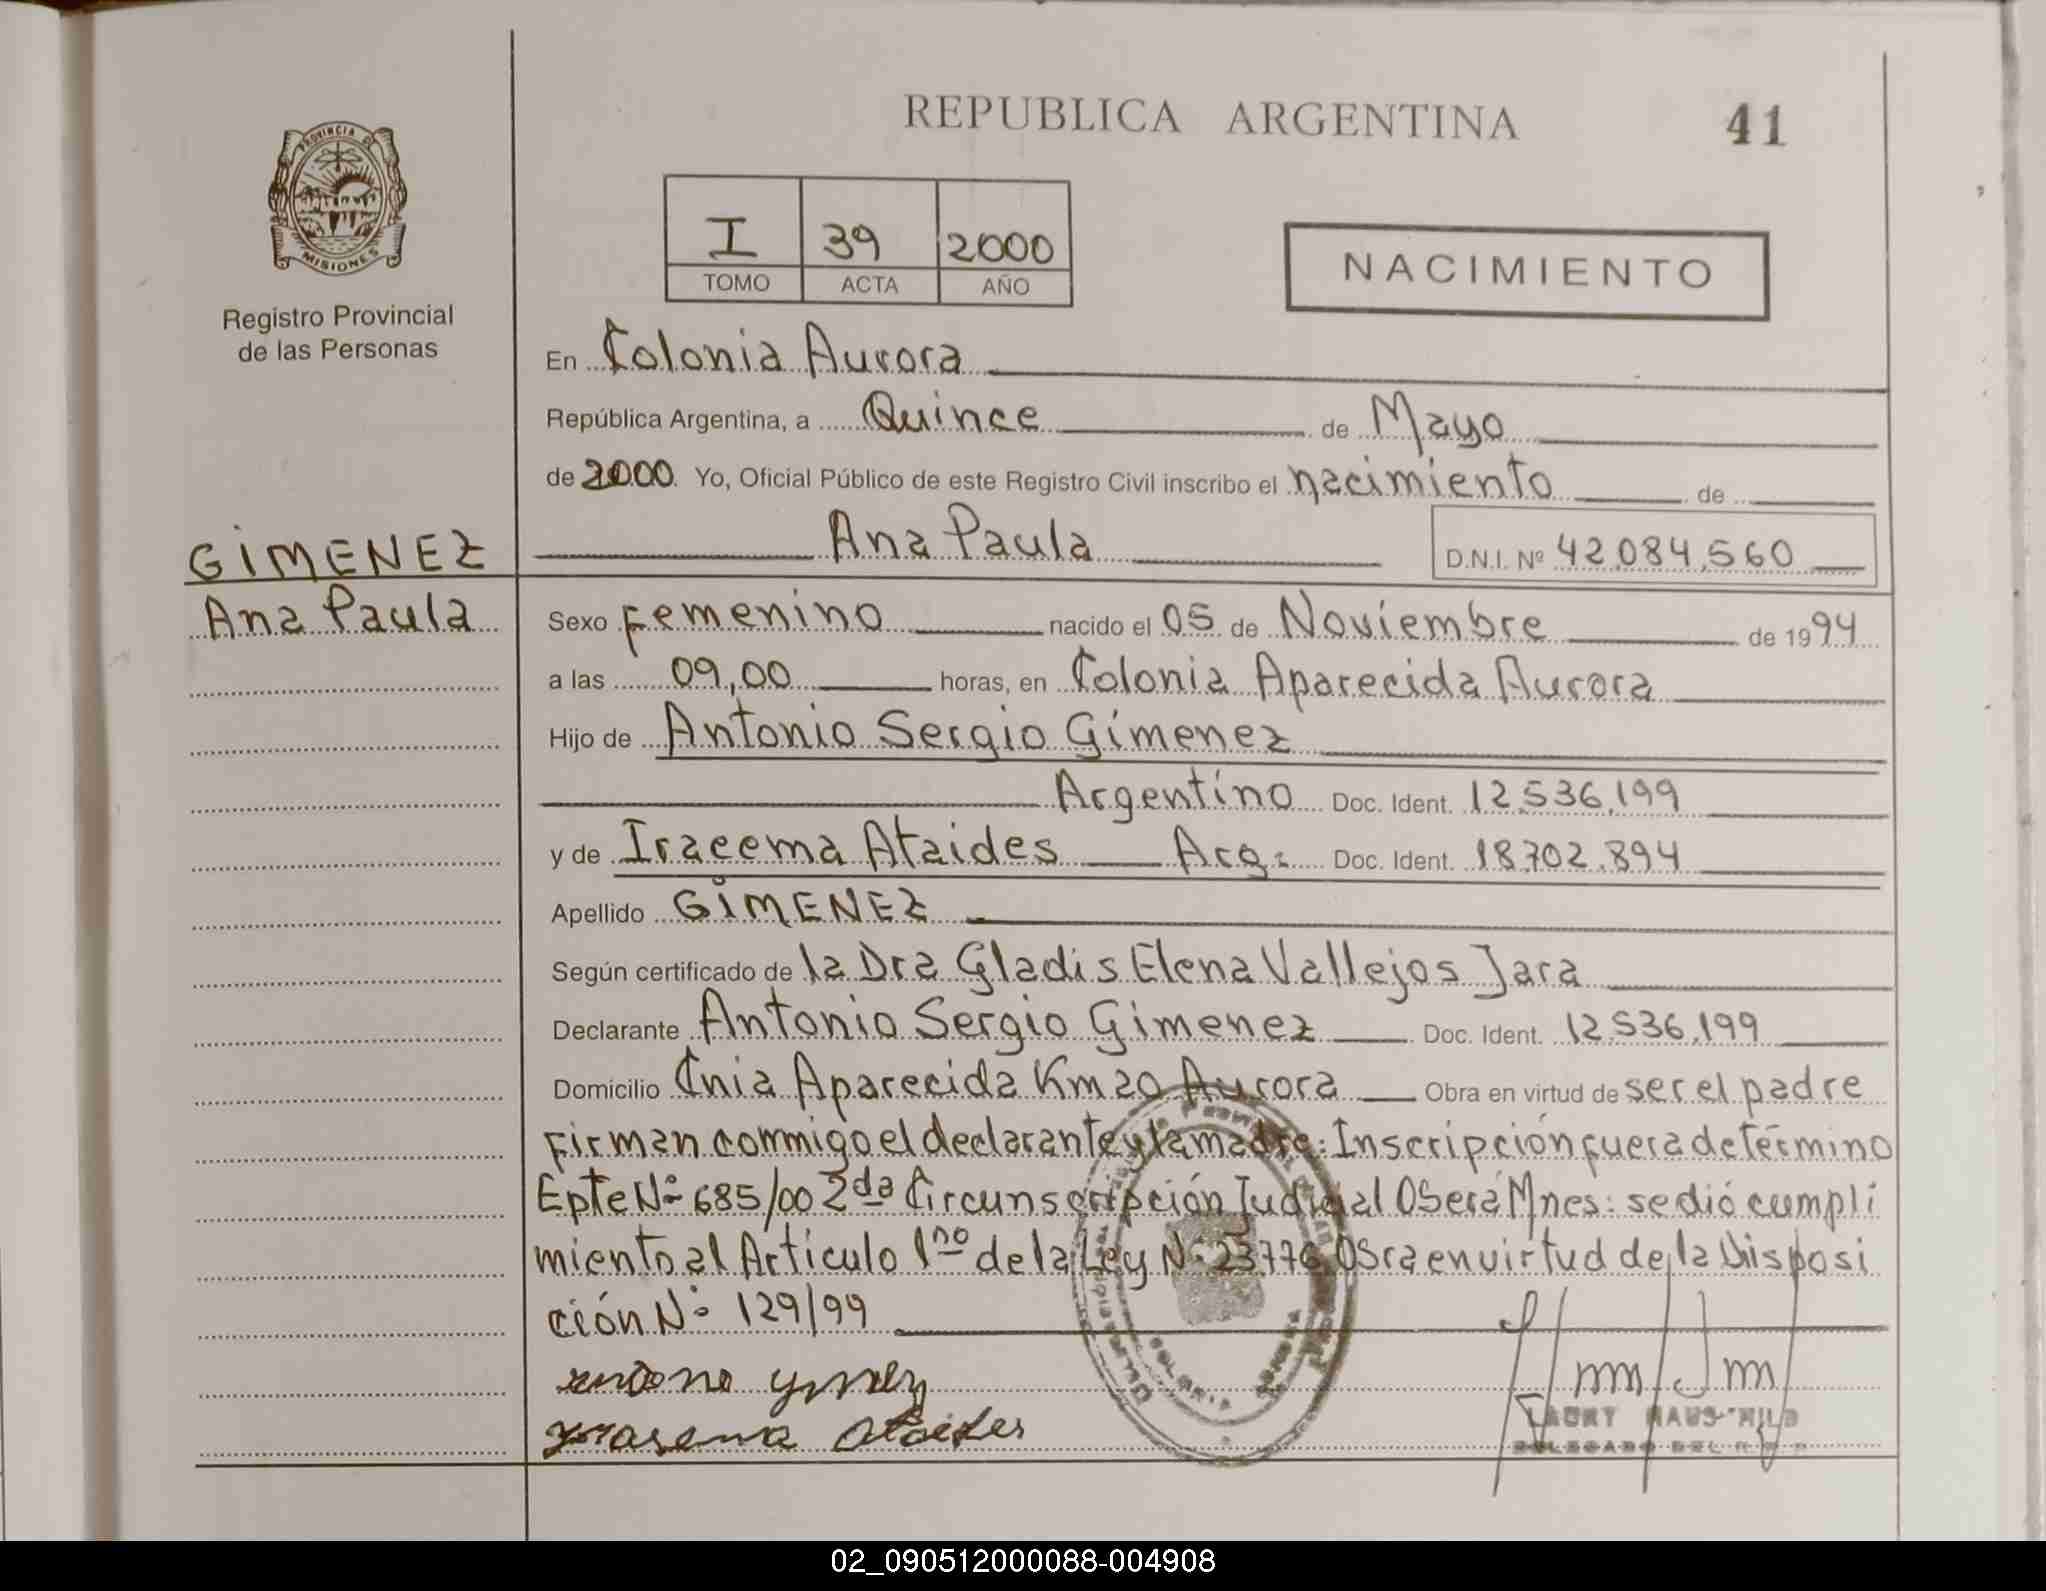 REPUBLICA ARGENTINA
41
PROVINCIA DE
MISIONES
Registro Provincial
de las Personas
I 39 2000
TOMO ACTA AÑO
NACIMIENTO
En Colonia Aurora
República Argentina, a Quince de Mayo
de 2000. Yo, Oficial Público de este Registro Civil inscribo el nacimiento de
GIMENEZ
Ana Paula
Ana Paula D.N.I. Nº 42.084.560
Sexo Femenino nacido el 05 de Noviembre de 1994
a las 09,00 horas, en Colonia Aparecida Aurora
Hijo de Antonio Sergio Gimenez
Argentino Doc. Ident. 12.536.199
y de Iracema Ataides Arg: Doc. Ident. 18.702.894
Apellido GIMENEZ
Según certificado de la Dra Gladis Elena Vallejos Jara
Declarante Antonio Sergio Gimenez Doc. Ident. 12.536.199
Domicilio Cnia Aparecida Km 20 Aurora Obra en virtud de ser el padre
Firman commigo el declarante y la madre: Inscripción fuera de término
Epte Nº 685/00 2da Circunscripción Judicial Oberá Mnes: se dió cumpli
miento al Artículo 1no de la Ley Nº 23776 en virtud de la Disposi
ción Nº 129/99
COLONIA AURORA
DELEGADO DEL
02_090512000088-004908